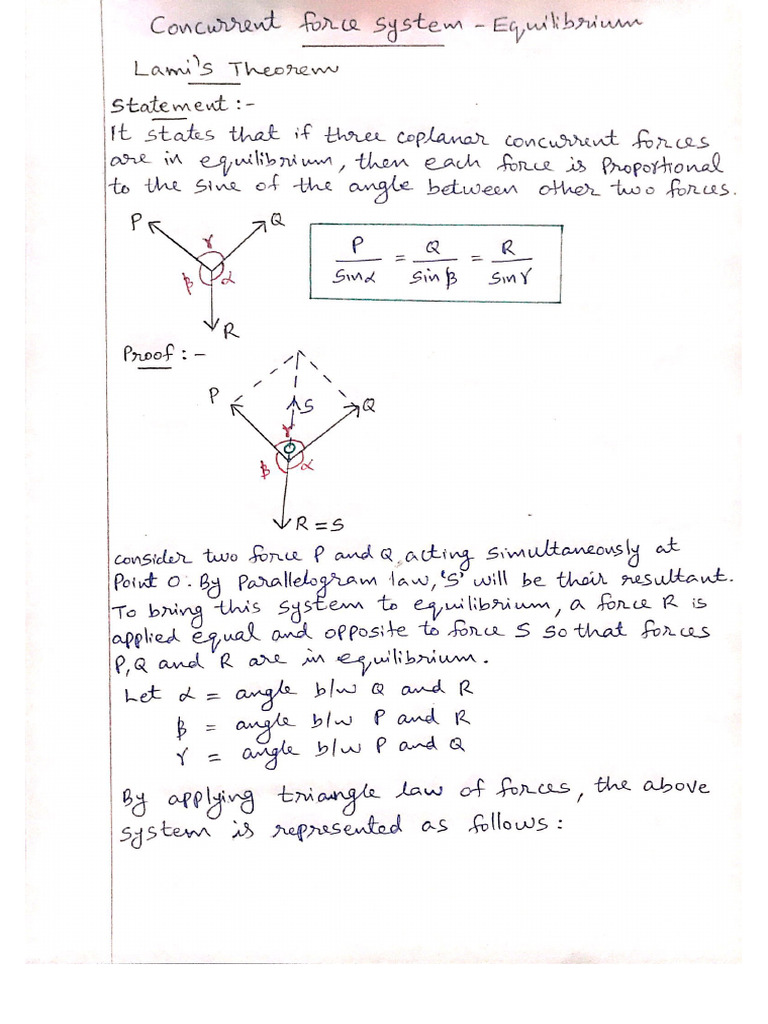 Concurrent force system - Equilibrium
Lami's Theorem
Statement :-
It states that if three coplanar concurrent forces
are in equilibrium, then each force is Proportional
to the sine of the angle between other two forces.
P Q
γ
β α
R
P/Sinα = Q/Sinβ = R/Sinγ
Proof :-
P S Q
γ
O
β α
R = S
Consider two force P and Q, acting simultaneously at
Point O. By Parallelogram law, 'S' will be their resultant.
To bring this system to equilibrium, a force R is
applied equal and opposite to force S so that forces
P, Q and R are in equilibrium.
Let α = angle b/w Q and R
β = angle b/w P and R
γ = angle b/w P and Q
By applying triangle law of forces, the above
system is represented as follows: